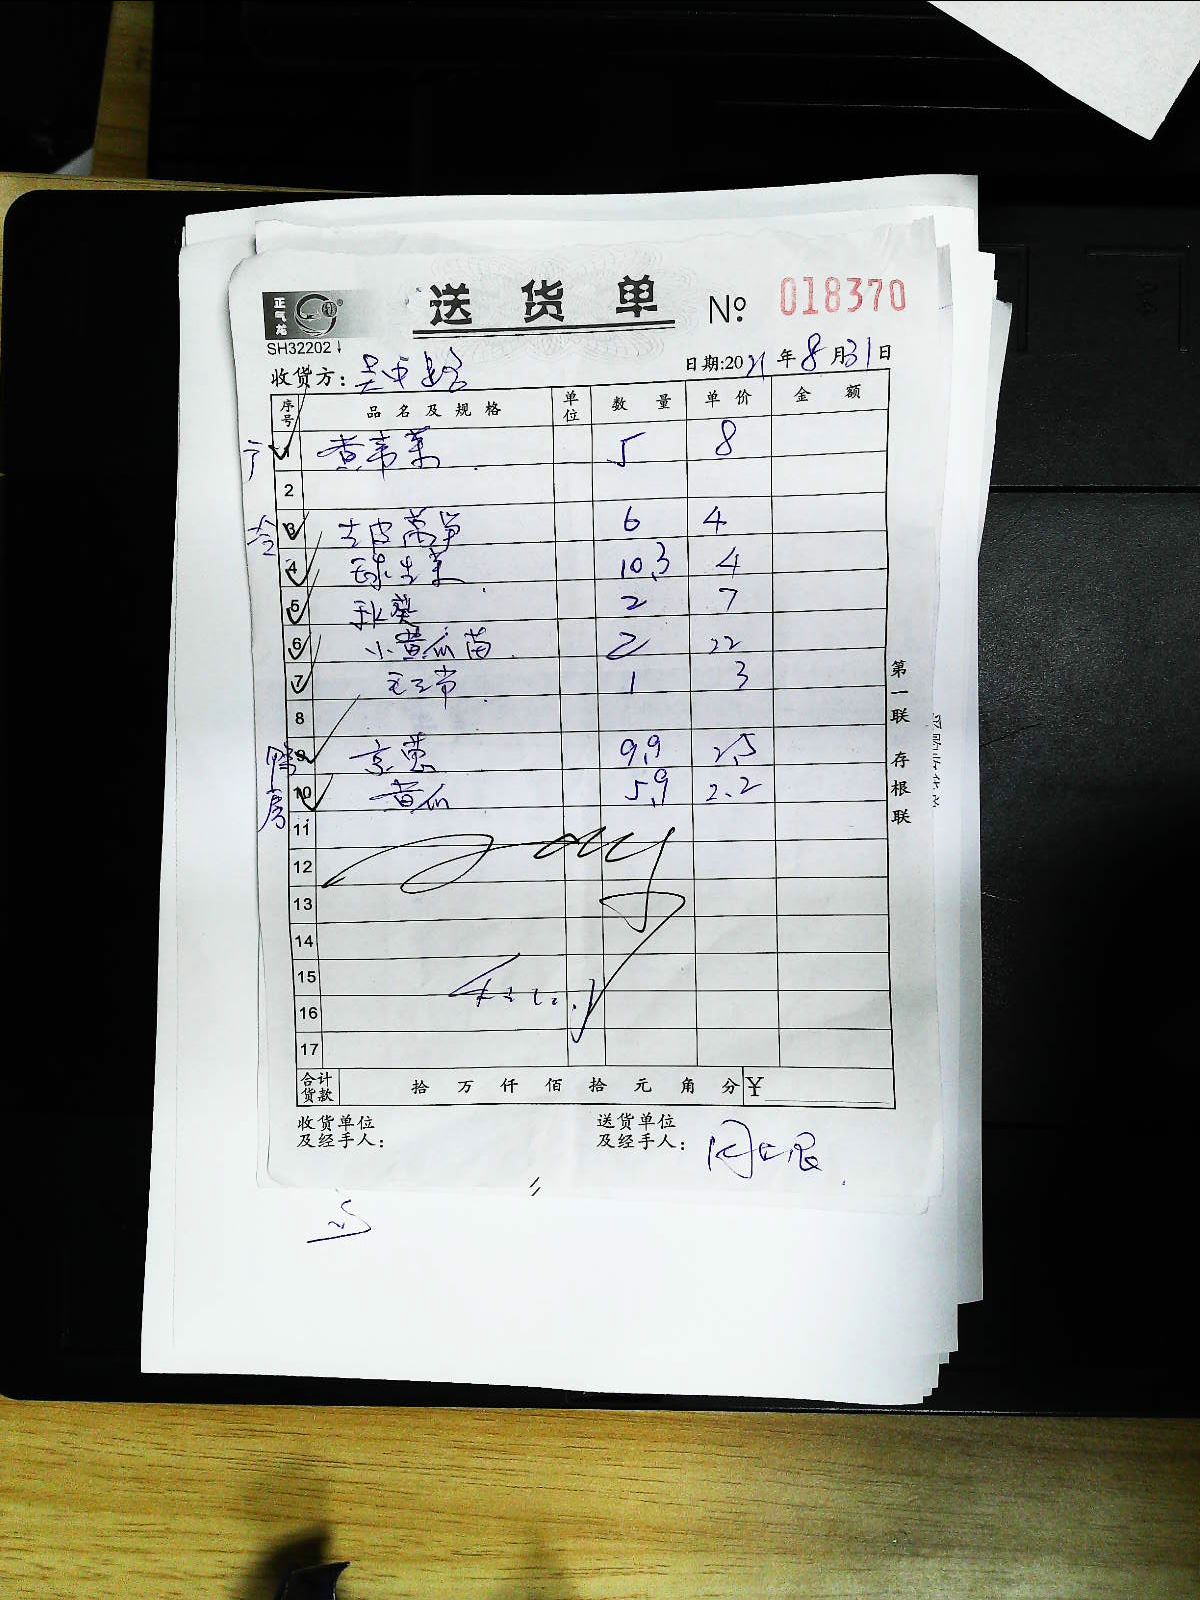 正气龙
送货单 No 018370
SH32202
收货方： 日期:2021年8月31日
序号 品名及规格 单位 数量 单价 金额
1 黄韭菜 5 8
2
3 去皮莴笋 6 4
4 球生菜 10.3 4
5 秋葵 2 7
6 小黄瓜苗 2 22
7 1 3
8
鸭房
9 京葱 9.9 2.5
10 黄瓜 5.9 2.2
11
12
13
14
15
16
17
合计货款 拾 万 仟 佰 拾 元 角 分 ¥
收货单位及经手人：
送货单位及经手人：
第一联 存根联